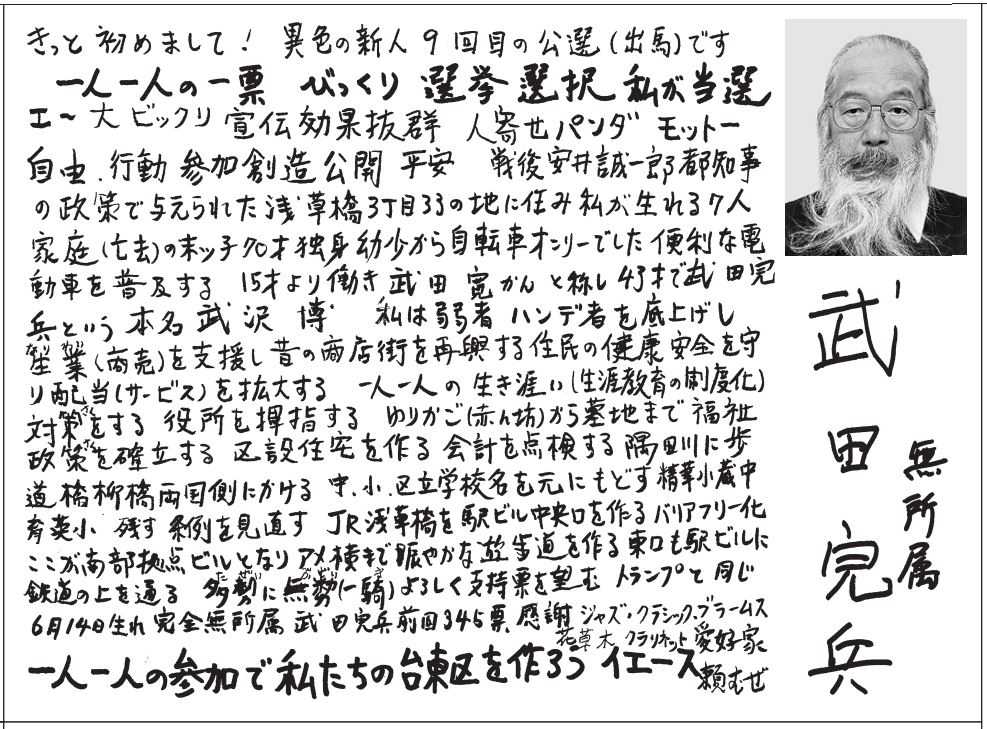 きっと 初めまして! 異色の新人 9回目の公選(出馬)です
一人一人の一票 びっくり 選挙 選択 私が当選
エ~大ビックリ 宣伝効果抜群 人寄せパンダ モットー
自由.行動 参加創造公開 平安 戦後安井誠一郎都知事
の政策で与えられた浅草橋3丁目33の地に住み私が生れる7人
家庭(亡去)の末ッ子70才独身幼少から自転車オンリーでした 便利な電
動車を普及する 15才より働き 武田 寛かんと称し43才で武田完
兵という 本名 武沢 博 私は弱者 ハンデ者を底上げし
生業(商売)を支援し昔の商店街を再興する住民の健康安全を守
り配当(サービス)を拡大する 一人一人の生き涯い(生涯教育の制度化)
対策をする 役所を揮指する ゆりかご(赤ん坊)から墓地まで福祉
政策を確立する 区設住宅を作る 会計を点検する 隅田川に歩
道橋柳橋両国側にかける 中.小.区立学校名を元にもどす精華小蔵中
育英小 残す 条例を見直す JR浅草橋を駅ビル中央口を作るバリアフリー化
ここが南部拠点ビルとなりアメ横まで賑やかな遊歩道を作る東口も駅ビルに
鉄道の上を通る 多勢に無勢(一騎)よろしく支持票を望む トランプと同じ
6月14日生れ 完全無所属 武田完兵前回345票 感謝 ジャズ・クラシック.ブラームス
花草木 クラリネット 愛好家
一人一人の参加で私たちの台東区を作ろう イエース
頼むぜ
武田完兵
無所属